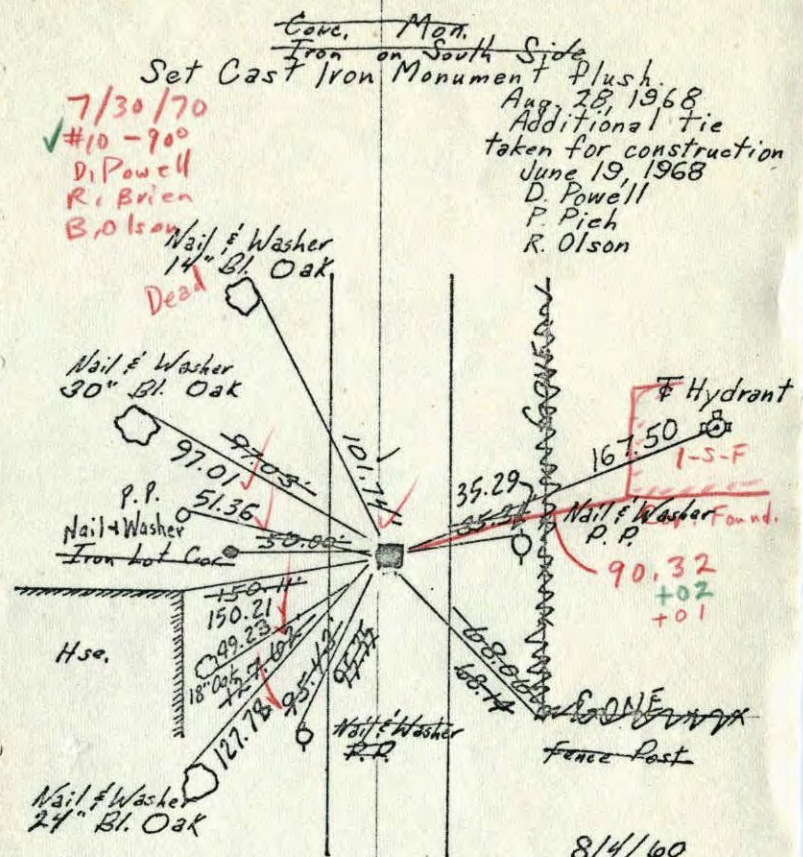 Conc. Mon.
Iron on South Side
Set Cast Iron Monument Flush.
Aug. 28, 1968
Additional tie
taken for construction
June 19, 1968
D. Powell
P. Pieh
R. Olson
7/30/70
✓#10 - 90°
D. Powell
R. Brien
B. Olson
Nail & Washer
14" Bl. Oak
Dead
Nail & Washer
30" Bl. Oak
101.74'
97.03'
97.01
51.36
P.P.
Nail & Washer
Iron Lot Cor.
50.00'
Hydrant
167.50
1-S-F
35.29
Nail & Washer
P.P.
Found.
90.32
+02
+01
GONE
150.11'
150.21
49.23
18" Oak
127.62
127.78
95.43'
Hse.
Nail & Washer
P.P.
68.14
GONE
Fence Post
Nail & Washer
24" Bl. Oak
8/4/60